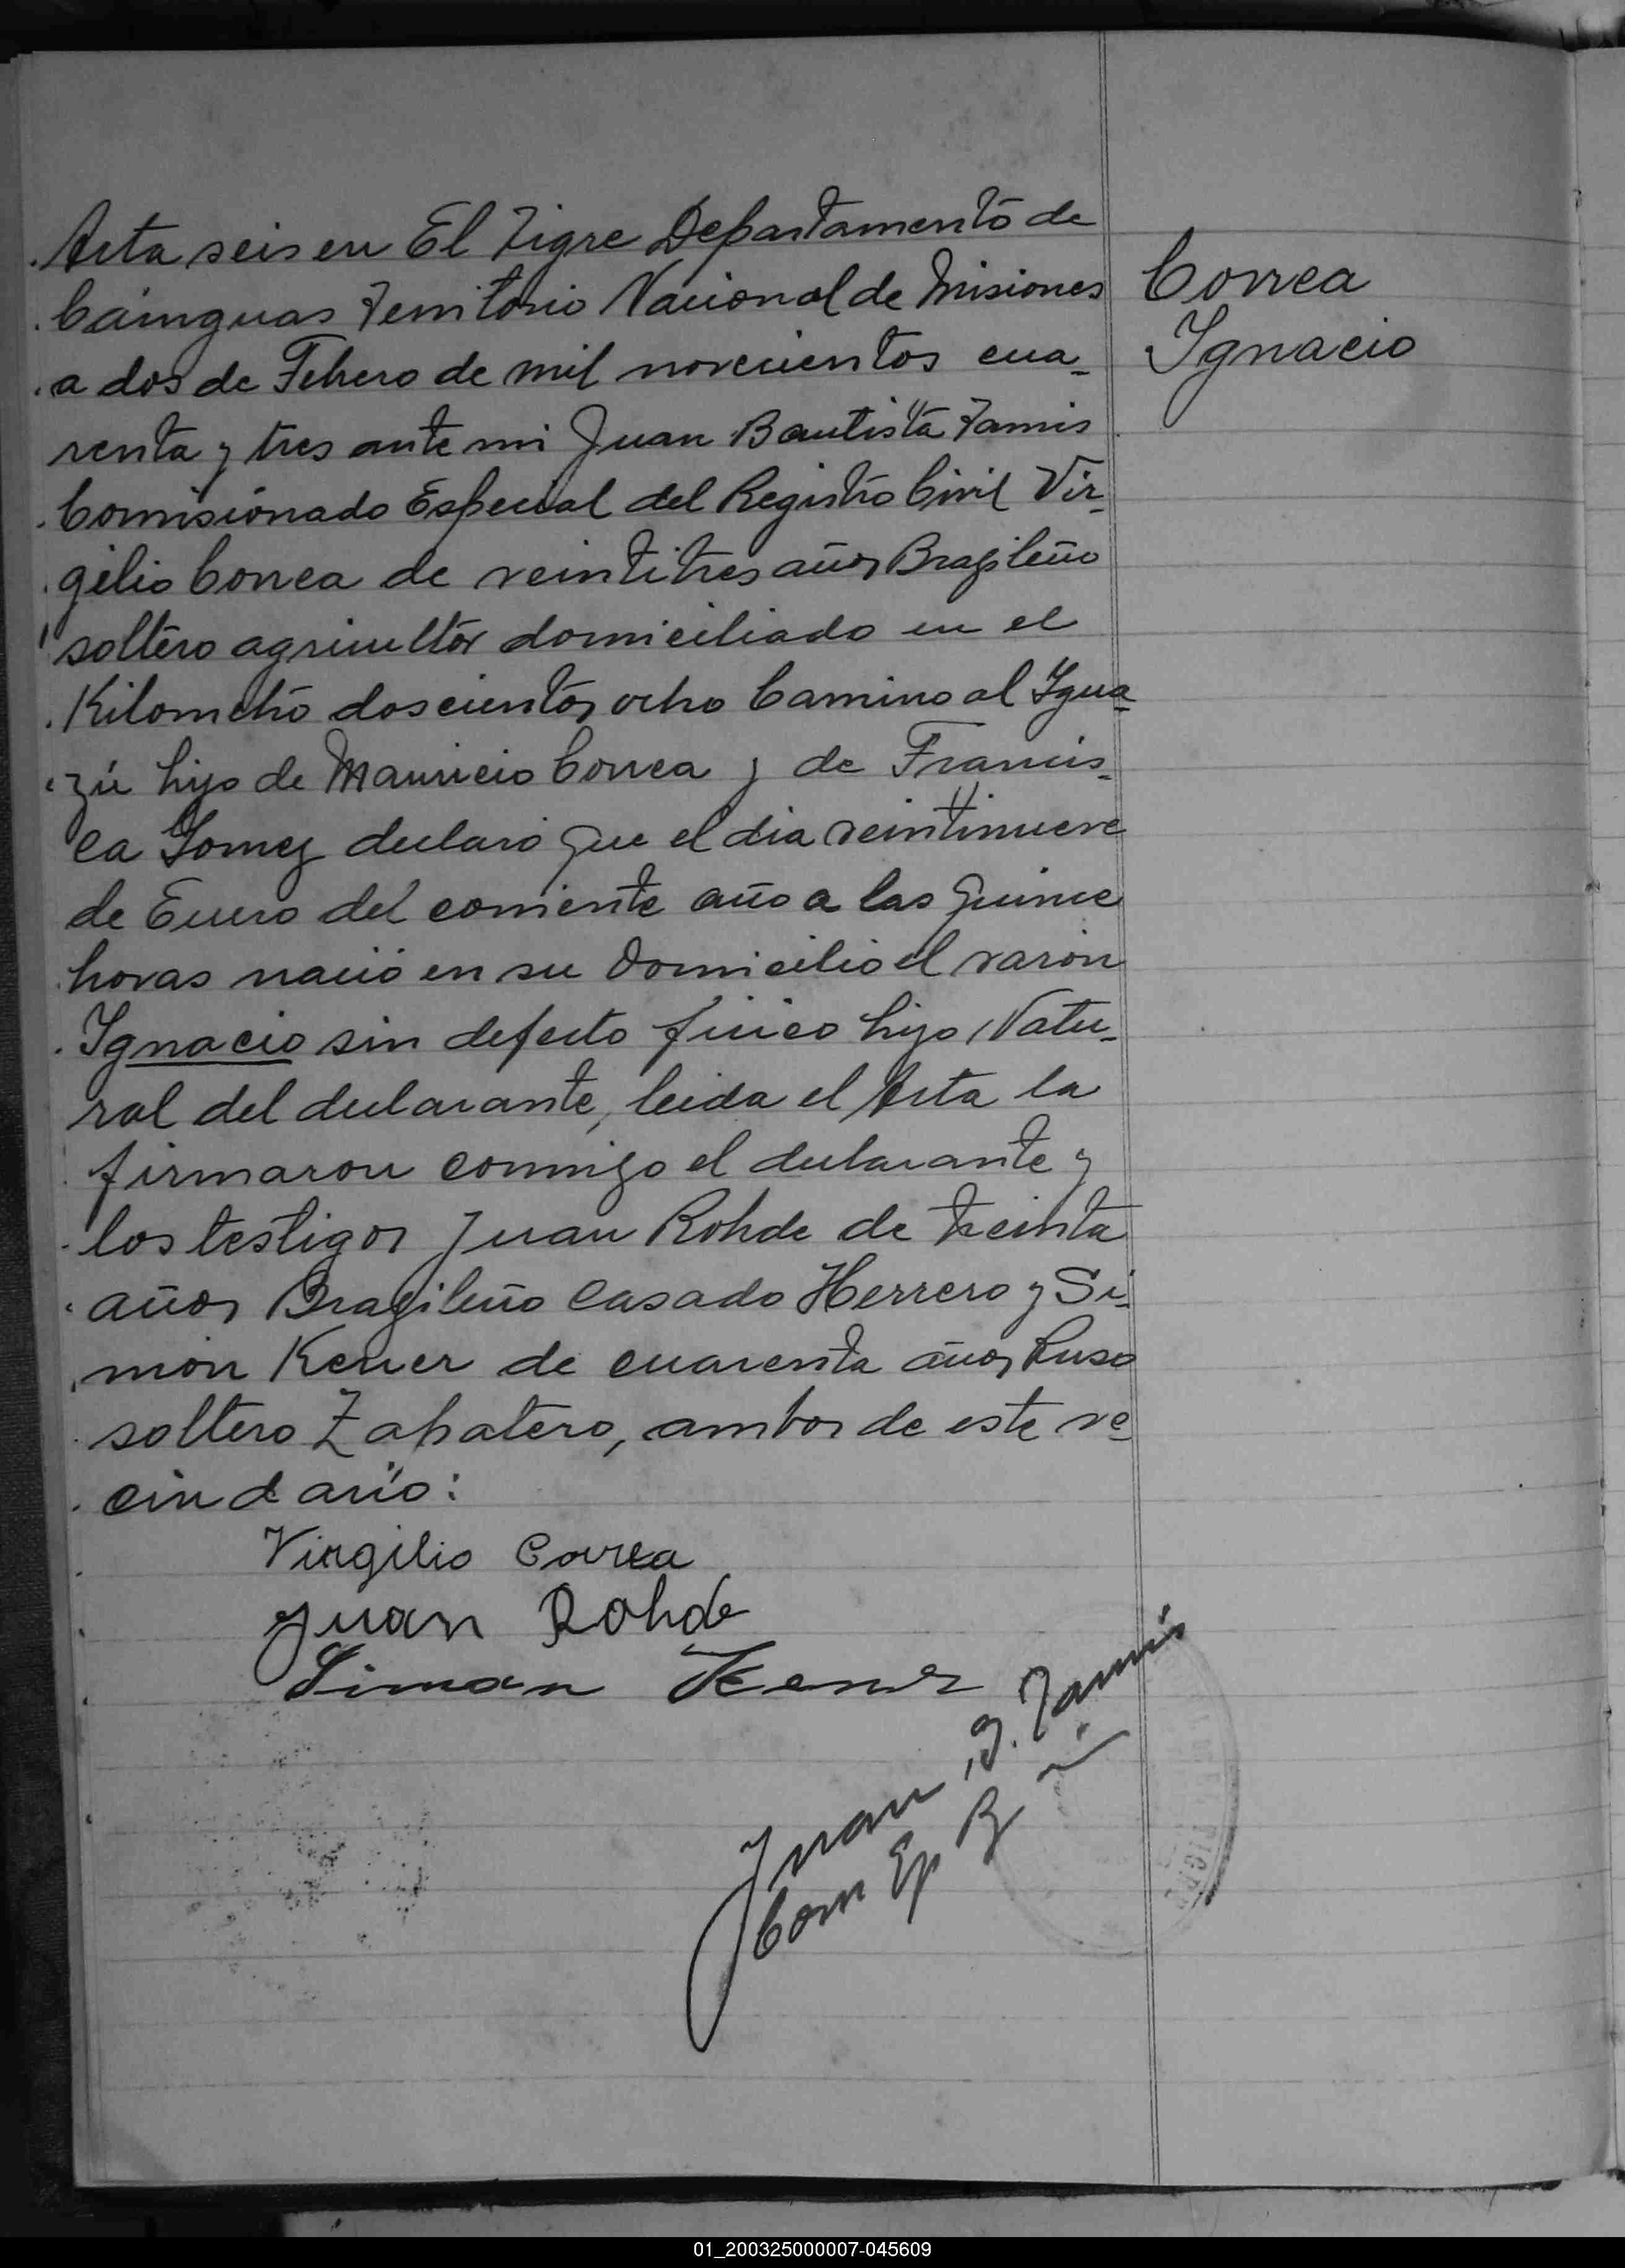 Acta seis en El Tigre Departamento de
Cainguas Territorio Nacional de Misiones
a dos de Febrero de mil novecientos cua-
renta y tres ante mi Juan Bautista Tamis
Comisionado Especial del Registro Civil Vir-
gilio Correa de veintitres años Brazileño
soltero agricultor domiciliado en el
Kilometro doscientos ocho Camino al Igua-
zú hijo de Mauricio Correa y de Francis-
ca Gomez declaró que el dia veintinueve
de Enero del corriente año a las quince
horas nació en su domicilio el varon
Ignacio sin defecto fisico hijo Natu-
ral del declarante, leida el Acta la
firmaron conmigo el declarante y
los testigos Juan Rohde de treinta
años Brazileño Casado Herrero y Si-
mon Kener de cuarenta años Ruso
soltero Zapatero, ambos de este ve-
cindario:
Virgilio Correa
Juan Rohde
Siman Kener
Juan B. Tamis
Com Esp R
Correa
Ignacio
01_200325000007-045609